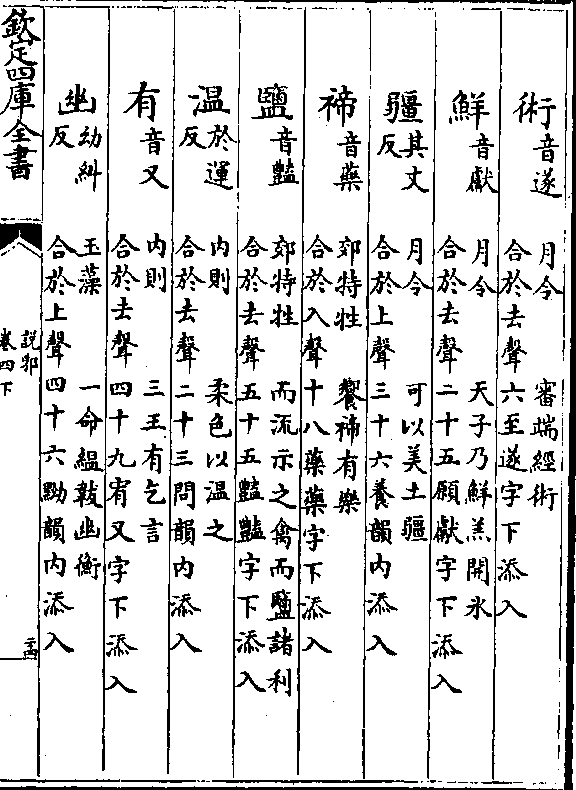 術音遂　月令　審端經術
合於去聲六至遂字下添入
鮮音獻　月令　天子乃鮮羔開氷
合於去聲二十五願獻字下添入
疆其丈反　月令　可以美土疆
合於上聲三十六養韻内添入
禘音藥　郊特牲　饗禘有樂
合於入聲十八藥藥字下添入
鹽音豔　郊特牲　而流示之禽而鹽諸利
合於去聲五十五豔豔字下添入
温於運反　内則　柔色以温之
合於去聲二十三問韻内添入
有音又　内則　三王有乞言
合於去聲四十九宥又字下添入
幽幼糾反　玉藻　一命緼韍幽衡
合於上聲四十六黝韻内添入
欽定四庫全書
説郛
卷四下
二四